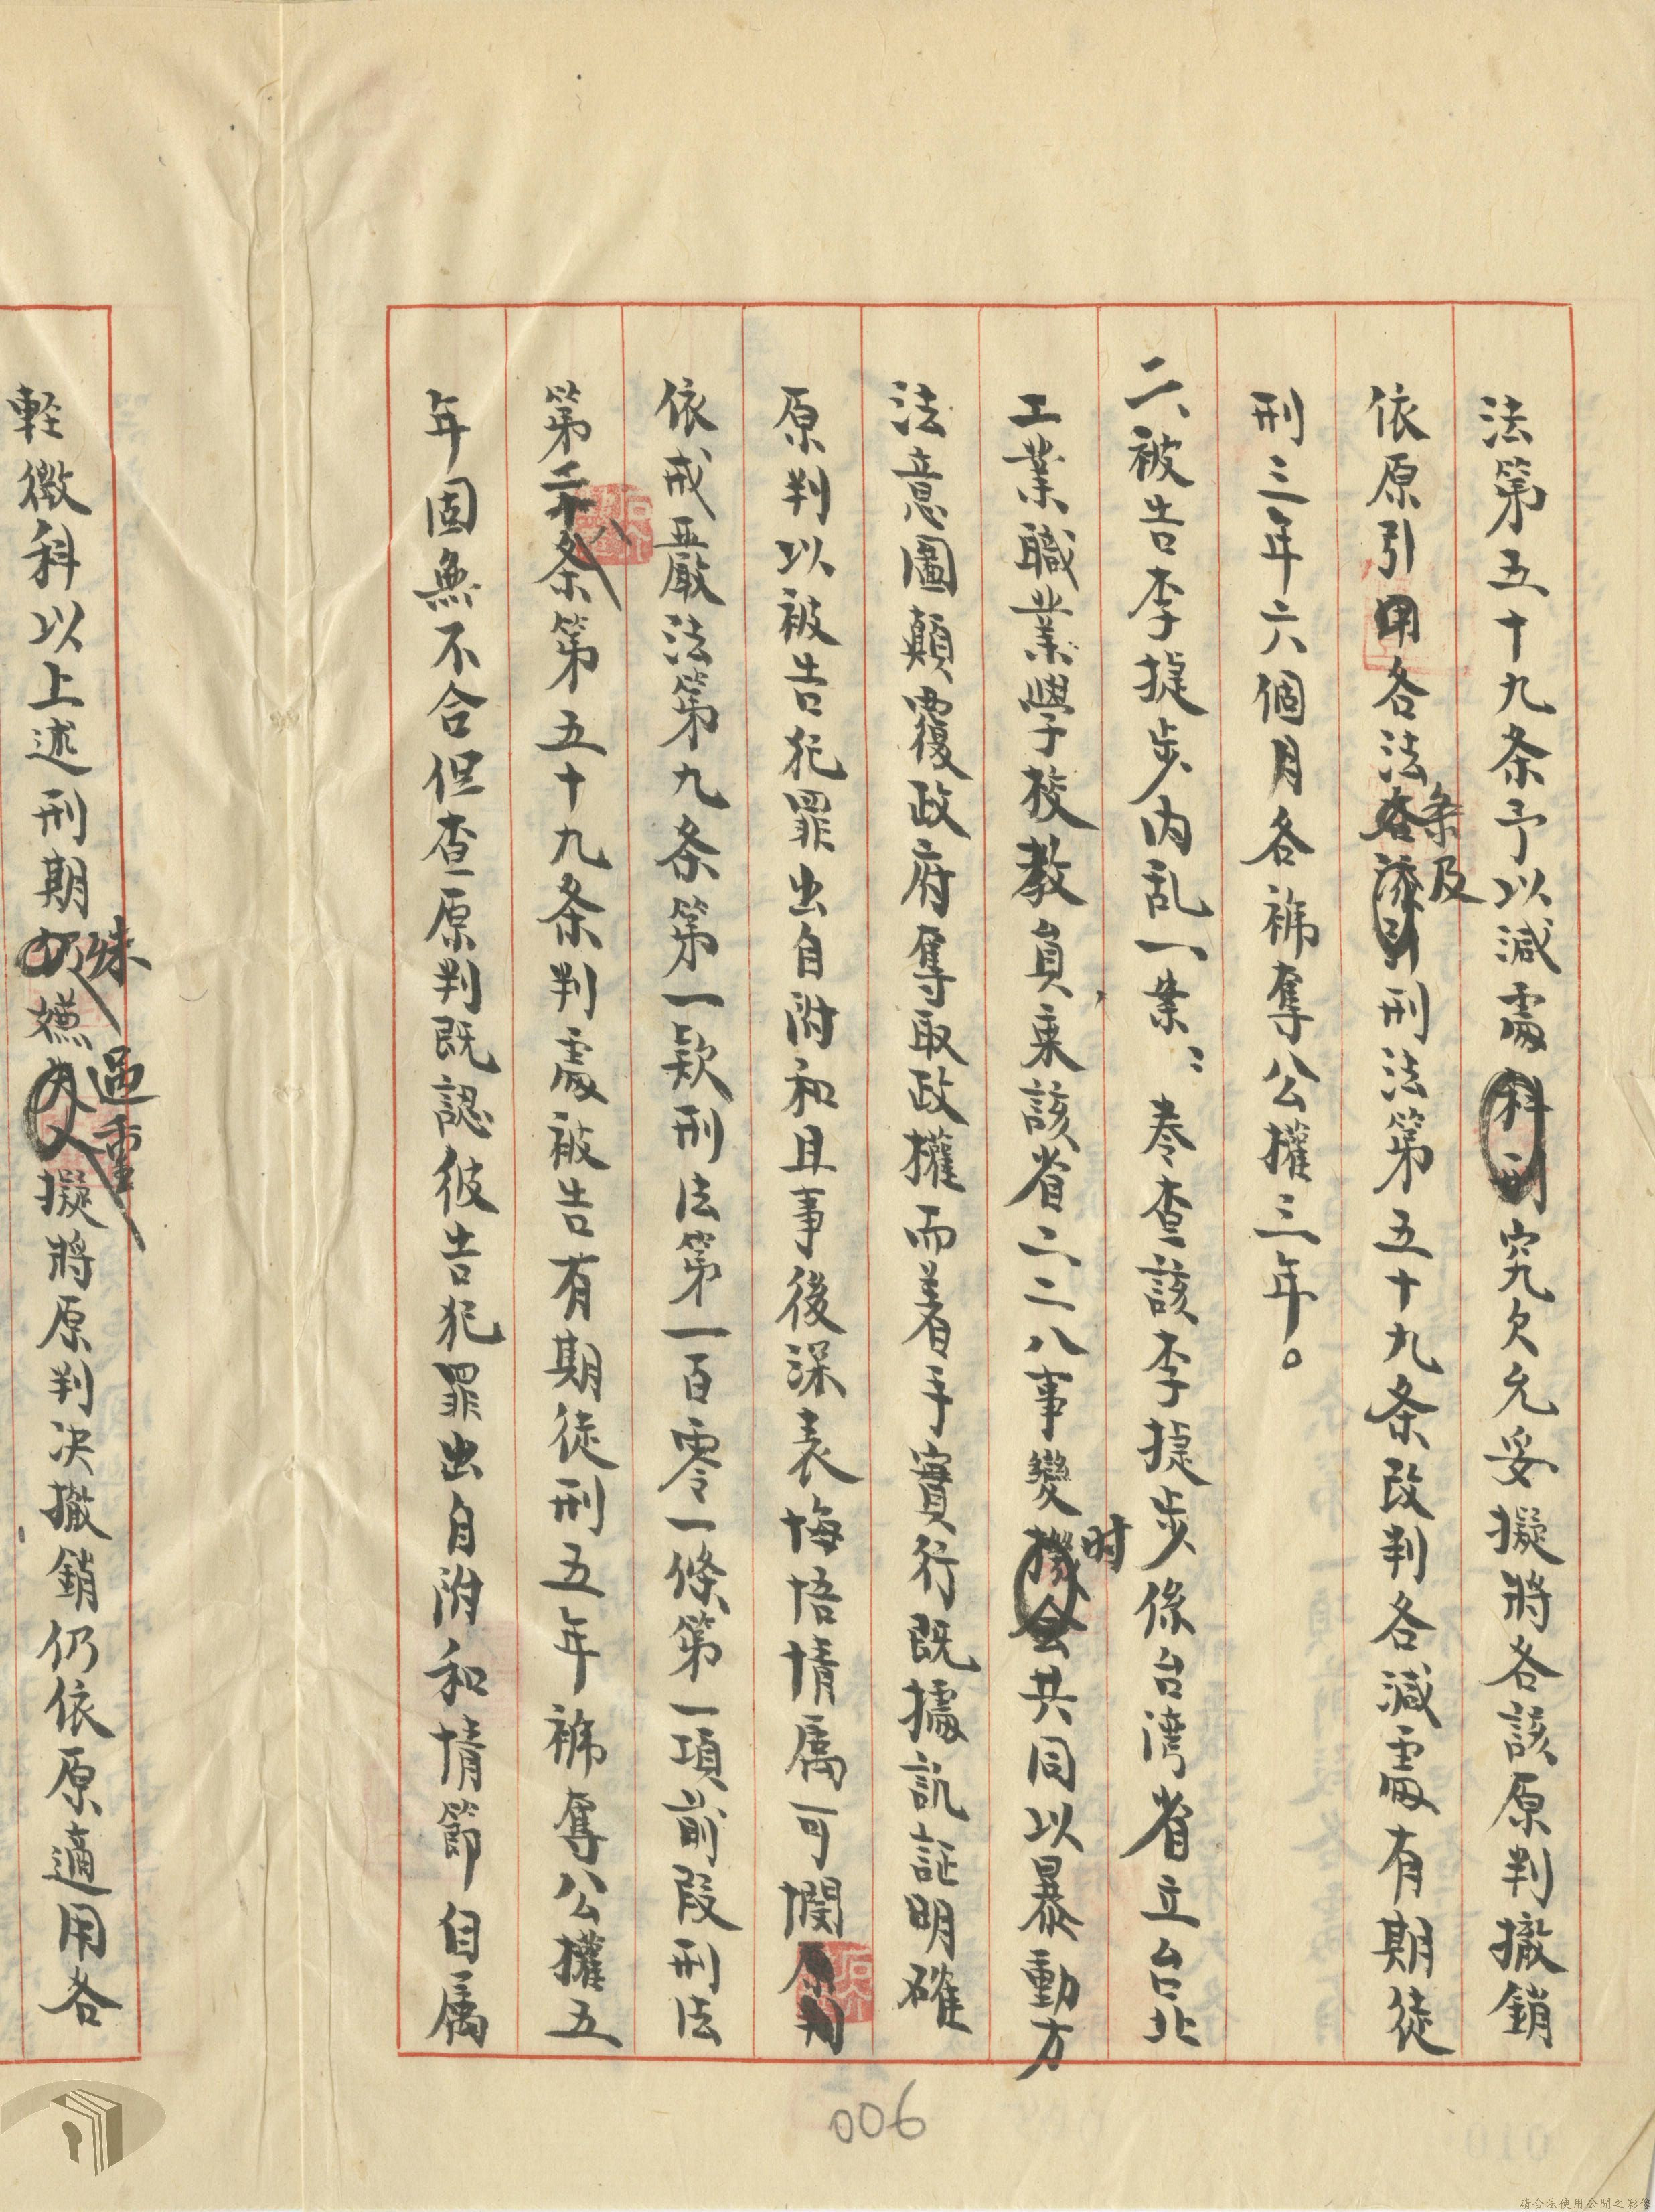 法第五十九条予以減處科刑究欠允妥擬將各該原判撤銷
依原引用各法条及刑法第五十九条改判各減處有期徒
刑三年六個月各褫奪公權三年。
二、被告李提步内乱一案：卷查該李提步係台湾省立台北
工業職業學校教員乘該省二二八事變时機会共同以暴動方
法意圖顛覆政府奪取政權而着手實行既據訊証明確
原判以被告犯罪出自附和且事後深表悔悟情属可憫原判
依戒嚴法第九条第一款刑法第一百零一條第一項前段刑法
第二十八条第五十九条判處被告有期徒刑五年褫奪公權五
年固無不合但查原判既認彼告犯罪出自附和情節自属
輕微科以上述刑期殊嫌過重擬將原判决撤銷仍依原適用各
006
請合法使用公開之影像